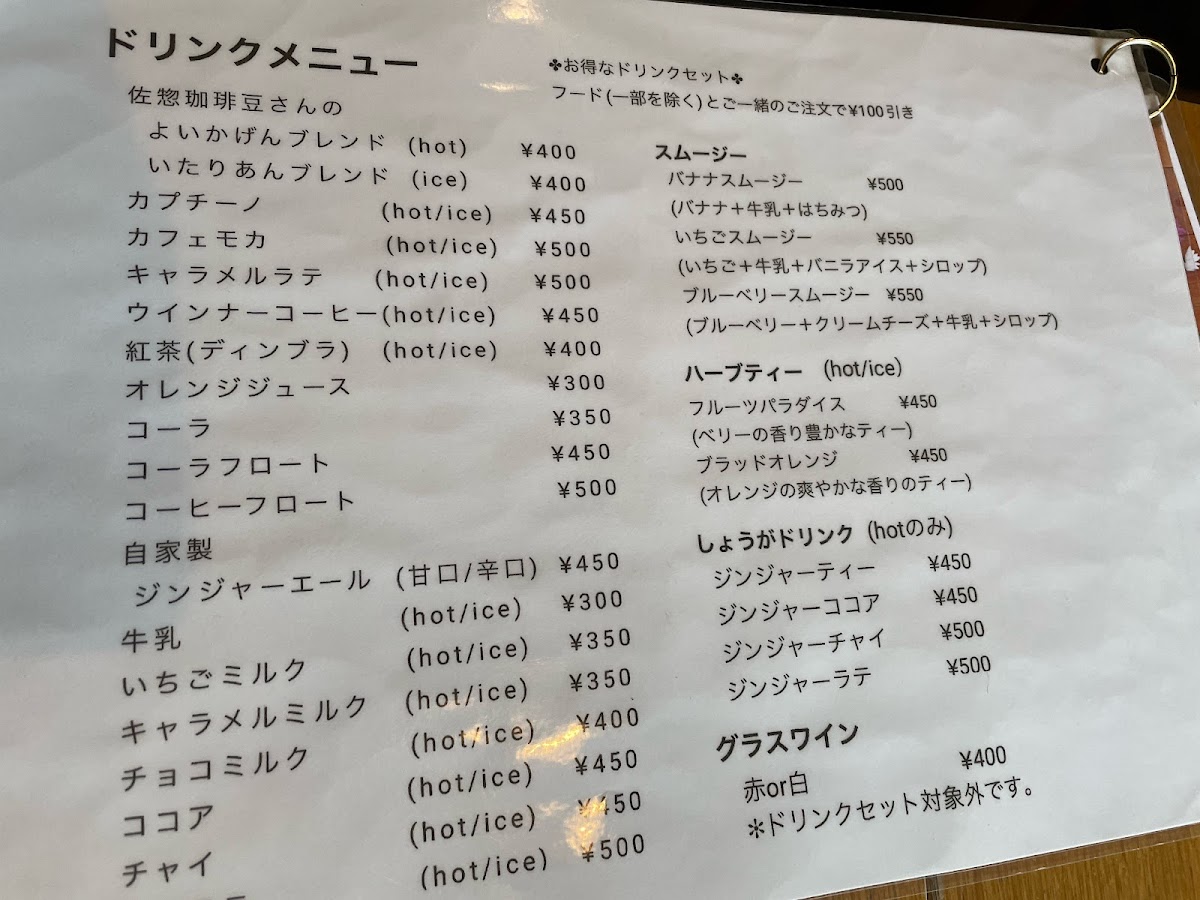 ドリンクメニュー
佐惣珈琲豆さんの
よいかげんブレンド (hot) ¥400
いたりあんブレンド (ice) ¥400
カプチーノ (hot/ice) ¥450
カフェモカ (hot/ice) ¥500
キャラメルラテ (hot/ice) ¥500
ウインナーコーヒー(hot/ice) ¥450
紅茶(ディンブラ) (hot/ice) ¥400
オレンジジュース ¥300
コーラ ¥350
コーラフロート ¥450
コーヒーフロート ¥500
自家製
ジンジャーエール (甘口/辛口) ¥450
牛乳 (hot/ice) ¥300
いちごミルク (hot/ice) ¥350
キャラメルミルク (hot/ice) ¥350
チョコミルク (hot/ice) ¥400
ココア (hot/ice) ¥450
チャイ (hot/ice) ¥450
(hot/ice) ¥500
✤お得なドリンクセット✤
フード(一部を除く)とご一緒のご注文で¥100引き
スムージー
バナナスムージー ¥500
(バナナ＋牛乳＋はちみつ)
いちごスムージー ¥550
(いちご＋牛乳＋バニラアイス＋シロップ)
ブルーベリースムージー ¥550
(ブルーベリー＋クリームチーズ＋牛乳＋シロップ)
ハーブティー (hot/ice)
フルーツパラダイス ¥450
(ベリーの香り豊かなティー)
ブラッドオレンジ ¥450
(オレンジの爽やかな香りのティー)
しょうがドリンク (hotのみ)
ジンジャーティー ¥450
ジンジャーココア ¥450
ジンジャーチャイ ¥500
ジンジャーラテ ¥500
グラスワイン
赤or白 ¥400
＊ドリンクセット対象外です。